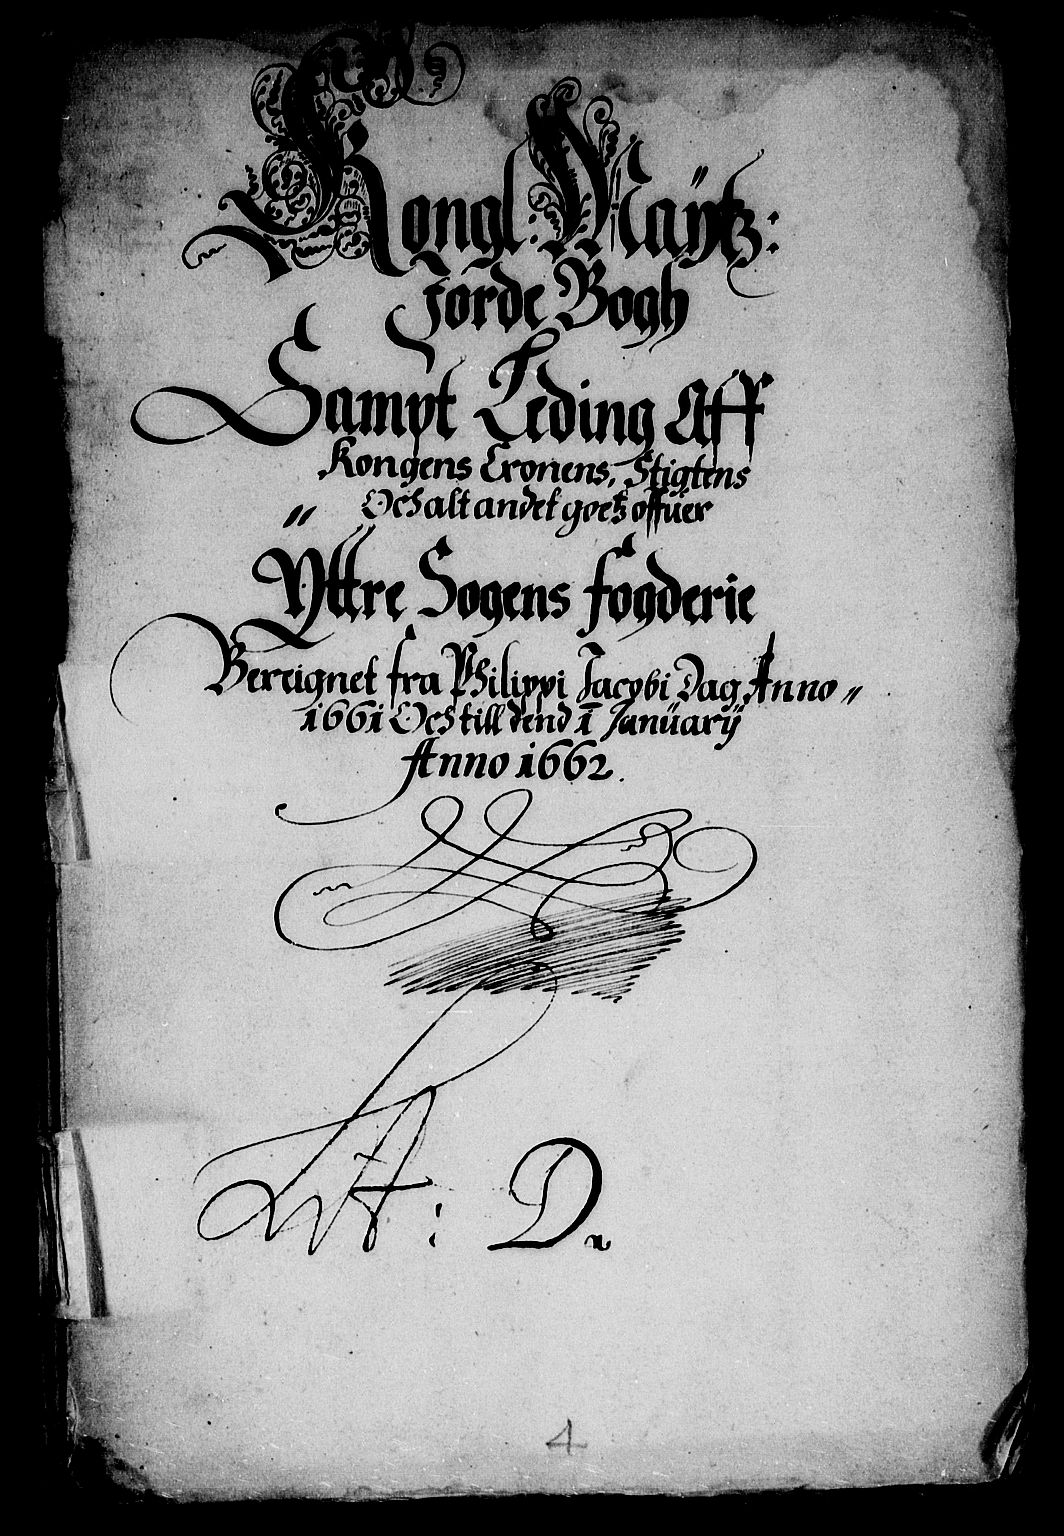 Kongl: Maÿtz:
Jorde Bogh
Sampt Leding Aff
Kongens Cronens, Stigtens
Och alt andet goetz offuer
Yttre Sogens fogderie
Bereignet fra Philippi Jacobi Dag Anno
1661 Och till dend 1 Januarÿ
Anno 1662.
Lit A: D.
4